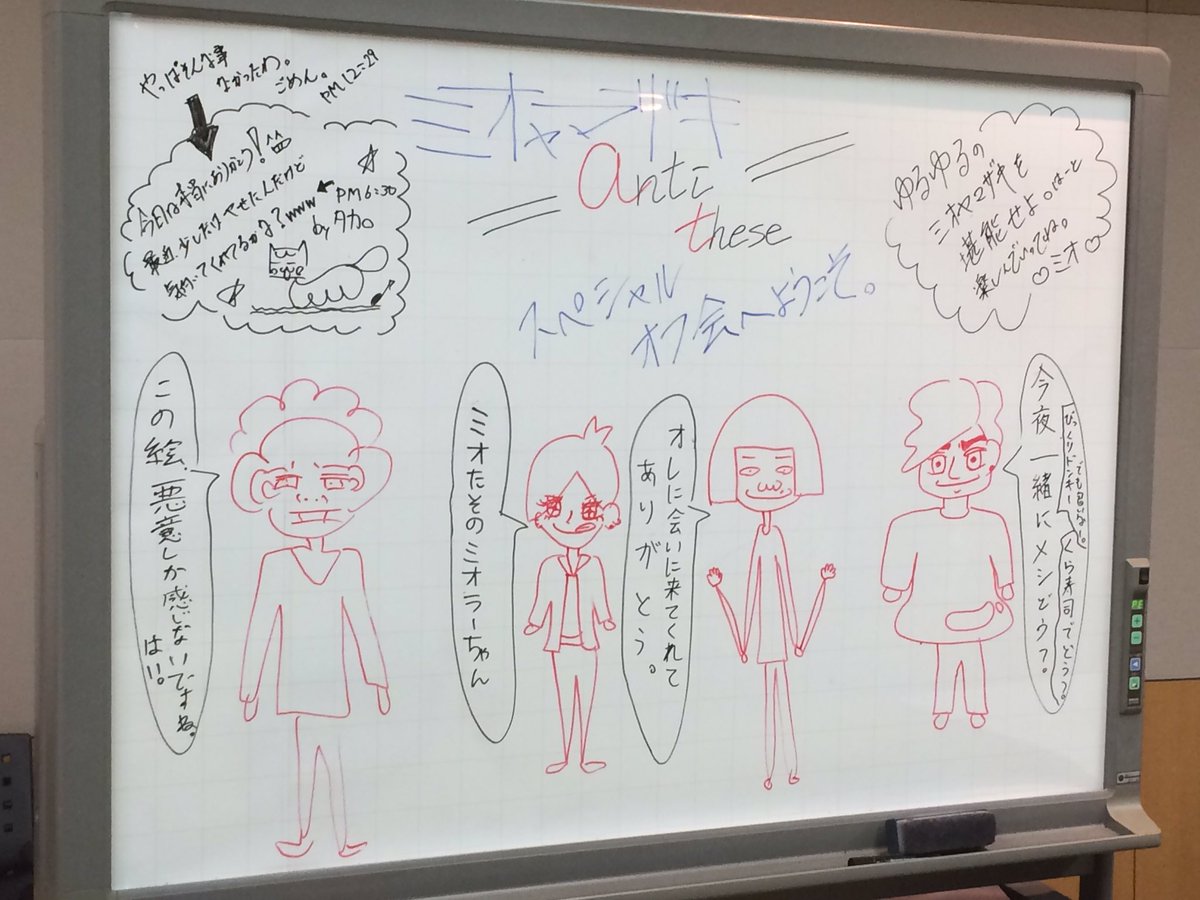 やっぱそんな事
なかったわ。
ごめん。
PM12:29
今日は来てくれてありがとう!
最近少しだけやせたんだけど
気づいてくれてるかな?www
PM6:30
by タカ。
ミオヤマザキ
anti
these
スペシャル
オフ会へようこそ。
ゆるゆるの
ミオヤマザキを
堪能せよ。はーと
楽しんでいってね。
♡ミオ♡
この絵、悪意しか感じないですね。
はい。
ミオたそのミオラーちゃん
オレに会いに来てくれて
ありがとう。
今夜一緒にメシどう?
びっくりドンキー
でも良いなー。
くら寿司でどう?